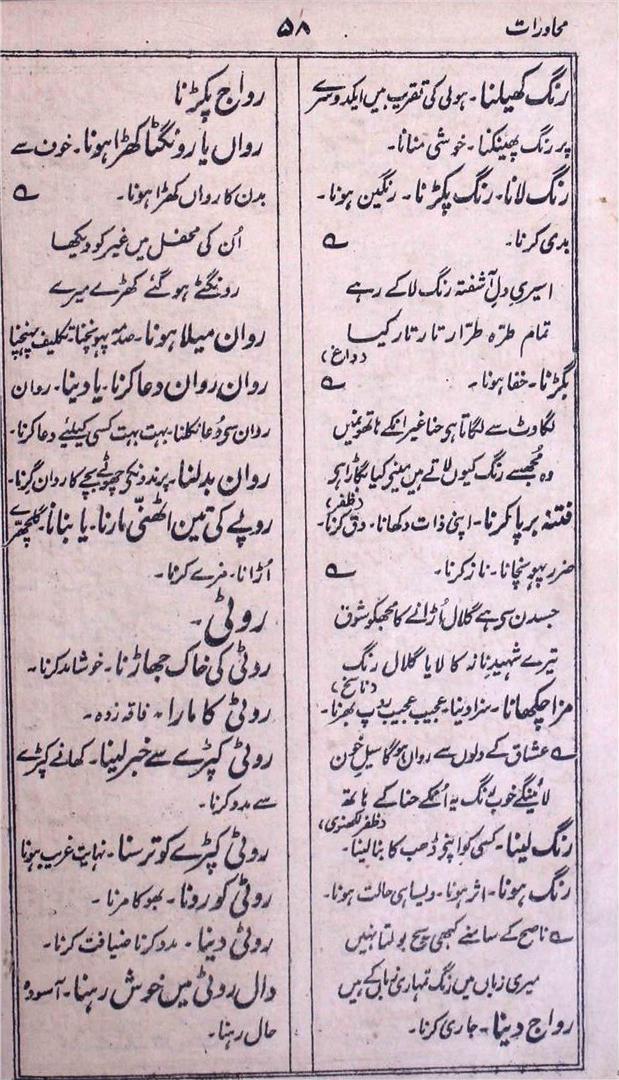 محاورات
۵۸
رنگ کھیلنا۔ ہولی کی تقریب میں ایکدوسرے
پر رنگ پھینکنا۔ خوشی منانا۔
رنگ لانا۔ رنگ پکڑنا۔ رنگین ہونا۔
بدی کرنا۔ ؎
اسیریِ دلِ آشفتہ رنگ لاکے رہے
تمام طرہ طرار تار تار کیا
(داغ)
بگڑنا۔ خفا ہونا۔ ؎
لگاوٹ سے لگاتا ہی حنا غیر انکے ہاتھونمیں
وہ مجھسے رنگ کیوں لاتے ہیں مینے کیا بگاڑا ہی
(ظفر)
فتنہ برپا کرنا۔ اپنی ذات دکھانا۔ دق کرنا۔
ضرر پہونچانا۔ ناز کرنا۔ ؎
جسدن سی ہے گلال اُڑانے کا مجھکو شوق
تیرے شہیدِ ناز کا لایا گلال رنگ
(ناسخ)
مزا چکھانا۔ سزا دینا۔ عجیب عجیب روپ بھرنا۔
؎ عشاق کے دلوں سے رواں ہوگا سیلِ خون
لائینگے خوب رنگ یہ اُنکے حنا کے ہاتھ
(ظفر لکھنوی)
رنگ لینا۔ کسی کو اپنی ڈھب کا بنا لینا۔
رنگ ہونا۔ اثر ہونا۔ ویسا ہی حالت ہونا۔
؎ ناصح کے سامنے کبھی سچ بولتا نہیں
میری زباں میں رنگ تمہاری زباں کے ہیں
رواج دینا۔ جاری کرنا۔
رواج پکڑنا
رواں یا رونگٹا کھڑا ہونا۔ خون سے
بدن کا رواں کھڑا ہونا۔ ؎
اُن کی محفل میں غیر کو دیکھا
رونگٹے ہوگئے کھڑے میرے
روان میلا ہونا۔ صدمہ پہونچنا تکلیف پہنچنا
روان روان دعا کرنا۔ یا دینا۔ روان
روان سی دُعا نکلنا۔ بہت بہت کسی کیلئے دعا کرنا۔
روان بدلنا۔ پرندونکی چھوٹے بچے کا روان گرنا۔
روپے کی تین اٹھنّی مارنا۔ یا بنانا۔ گلچھرے
اُڑانا۔ مزے کرنا۔
روٹی۔
روٹی کی خاک جھاڑنا۔ خوشامد کرنا۔
روٹی کا مارا۔ فاقہ زدہ۔
روٹی کپڑے سے خبر لینا۔ کھانے کپڑے
سے مدد کرنا۔
روٹی کپڑے کو ترسنا۔ نہایت غریب ہونا
روٹی کو رونا۔ بھوکا مرنا۔
روٹی دینا۔ مدد کرنا ضیافت کرنا۔
دال روٹی میں خوش رہنا۔ آسودہ
حال رہنا۔